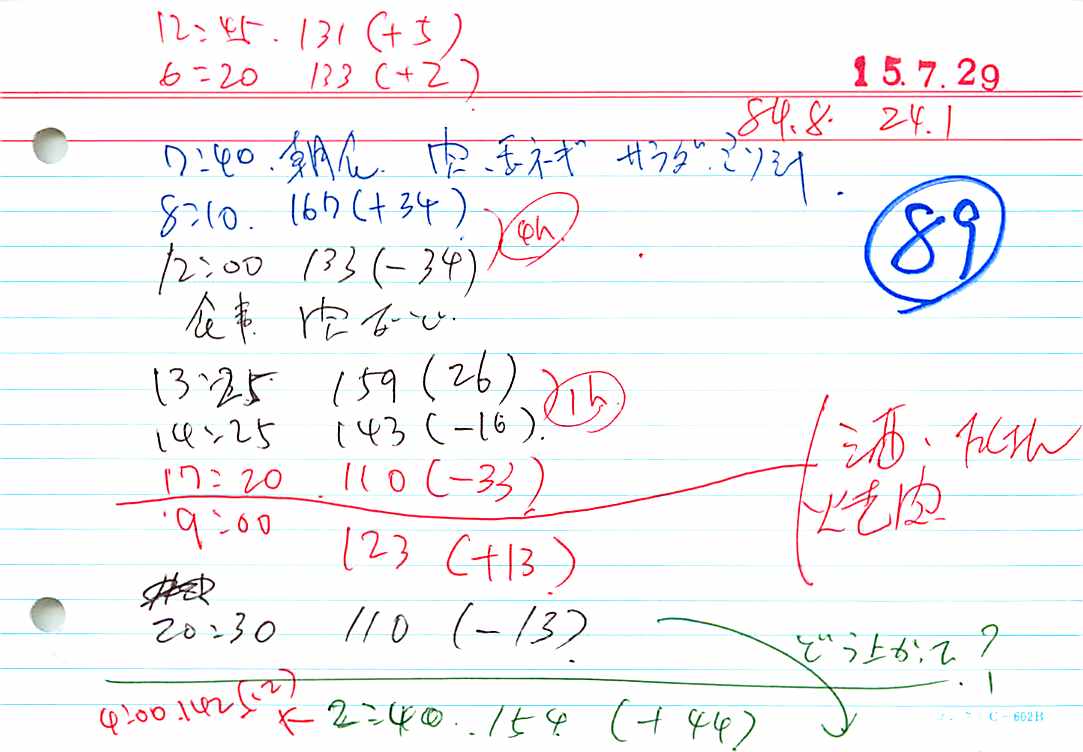 12:45. 131 (+5)
6:20 133 (+2)
15.7.29
84.8. 24.1
7:40. 朝食. 玉ネギ サラダ.
8:10. 167 (+34)
4h
89
12:00 133 (-34)
食事
13:25 159 (26)
1h
14:25 143 (-16).
17:20 110 (-33)
酒、
焼
19:00
123 (+13)
20:30 110 (-13)
どう上がって?
4:00.142 ← 2:40. 154 (+44)
C-602B